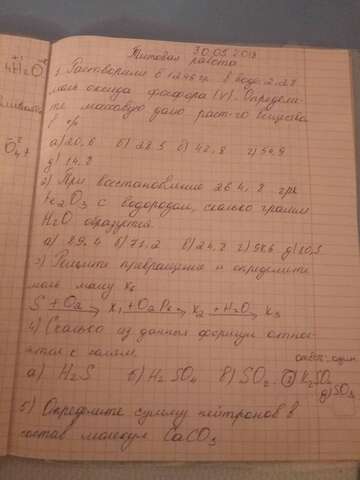 30.05.2018
Итоговая работа
4H₂O
1. Растворили в 1246 г. в воде 2,28
моль оксида фосфора (V). Определи-
те массовую долю раст-го вещества
в %
а) 20,6 б) 28,5 в) 42,8 г) 54,9
д) 14,2
2) При восстановление 264,8 гр
Fe₂O₃ с водородом, сколько грамм
H₂O образуется.
а) 89,4 в) 24,2 г) 98,6
3) Решите превращение и определите
моль массу X₃
S + O₂ → X₁ + O₂ → X₂ + H₂O → X₃
4) Сколько из данных формул относ-
ится к солям.
ответ: один
а) H₂S б) H₂SO₄ в) SO₂ г) K₂SO₄
д) SO₃
5) Определите сумму нейтронов в
состав молекул CaCO₃